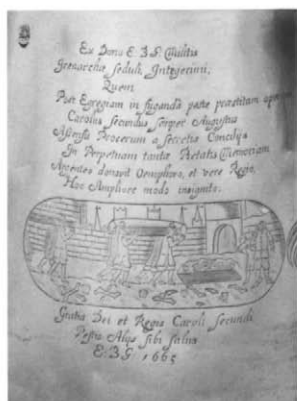 Ex Dono E. B. G. Militis
Seduli, Integerimi,
Quem
Post Egregiam in fuganda peste præstitam
Carolus secundus semper Augustus
Assensu Procerum a secretis Concilijs
In Perpetuam tantæ Pietatis Memoriam
Argenteo donavit Oenophoro, et vere Regio,
Hoc modo insignito:
Gratia Dei et Regis Caroli Secundi
Pestis Alijs sibi salus
E. B. G 1665